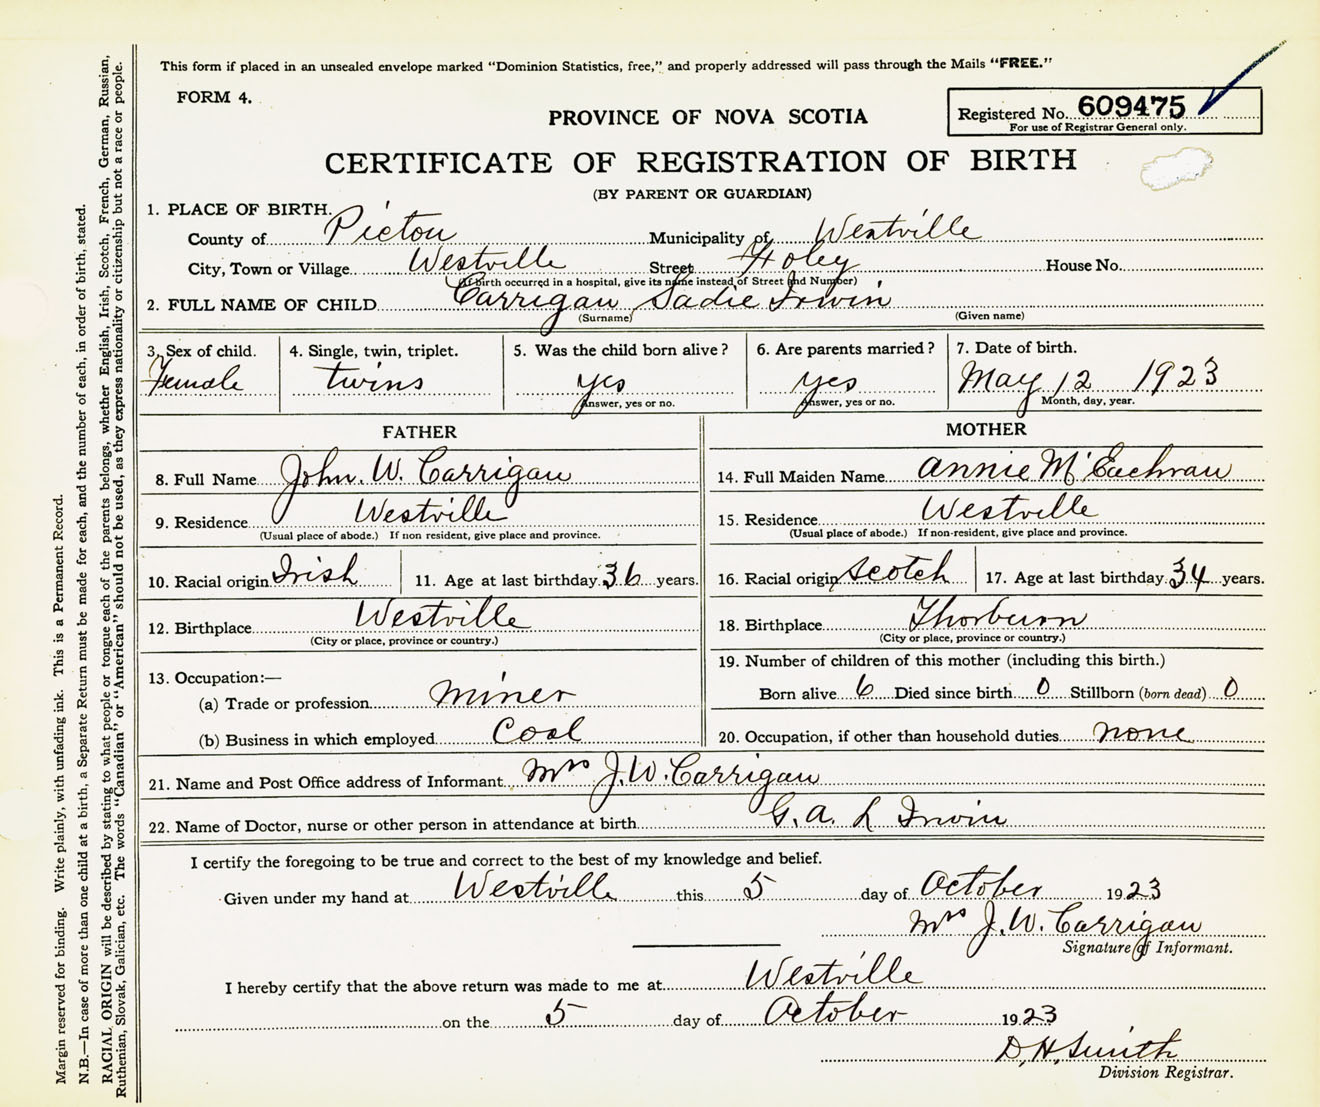 This form if placed in an unsealed envelope marked "Dominion Statistics, free," and properly addressed will pass through the Mails "FREE."
FORM 4.
Registered No. 609475
For use of Registrar General only.
PROVINCE OF NOVA SCOTIA
CERTIFICATE OF REGISTRATION OF BIRTH
(BY PARENT OR GUARDIAN)
1. PLACE OF BIRTH.
County of Pictou Municipality of Westville
City, Town or Village Westville Street Foley House No.
(If birth occurred in a hospital, give its name instead of Street and Number)
2. FULL NAME OF CHILD Carrigan Sadie Irwin
(Surname) (Given name)
3. Sex of child. 4. Single, twin, triplet. 5. Was the child born alive? 6. Are parents married? 7. Date of birth.
Female twins yes yes May 12 1923
Answer, yes or no. Answer, yes or no. Month, day, year.
FATHER
8. Full Name John. W. Carrigan
9. Residence Westville
(Usual place of abode.) If non resident, give place and province.
10. Racial origin Irish 11. Age at last birthday 36 years.
12. Birthplace Westville
(City or place, province or country.)
13. Occupation:—
(a) Trade or profession miner
(b) Business in which employed Coal
MOTHER
14. Full Maiden Name Annie McEachran
15. Residence Westville
(Usual place of abode.) If non-resident, give place and province.
16. Racial origin Scotch 17. Age at last birthday 34 years.
18. Birthplace Thorburn
(City or place, province or country.)
19. Number of children of this mother (including this birth.)
Born alive 6 Died since birth 0 Stillborn (born dead) 0
20. Occupation, if other than household duties none
21. Name and Post Office address of Informant Mrs J.W. Carrigan
22. Name of Doctor, nurse or other person in attendance at birth G. A. L Irwin
I certify the foregoing to be true and correct to the best of my knowledge and belief.
Given under my hand at Westville this 5 day of October 1923
Mrs J.W. Carrigan
Signature of Informant.
I hereby certify that the above return was made to me at Westville
on the 5 day of October 1923
D, H, Smith
Division Registrar.
Margin reserved for binding. Write plainly, with unfading ink. This is a Permanent Record.
N.B.—In case of more than one child at a birth, a Separate Return must be made for each, and the number of each, in order of birth, stated.
RACIAL ORIGIN will be described by stating to what people or tongue each of the parents belongs, whether English, Irish, Scotch, French, German, Russian,
Ruthenian, Slovak, Galician, etc. The words "Canadian" or "American" should not be used, as they express nationality or citizenship but not a race or people.